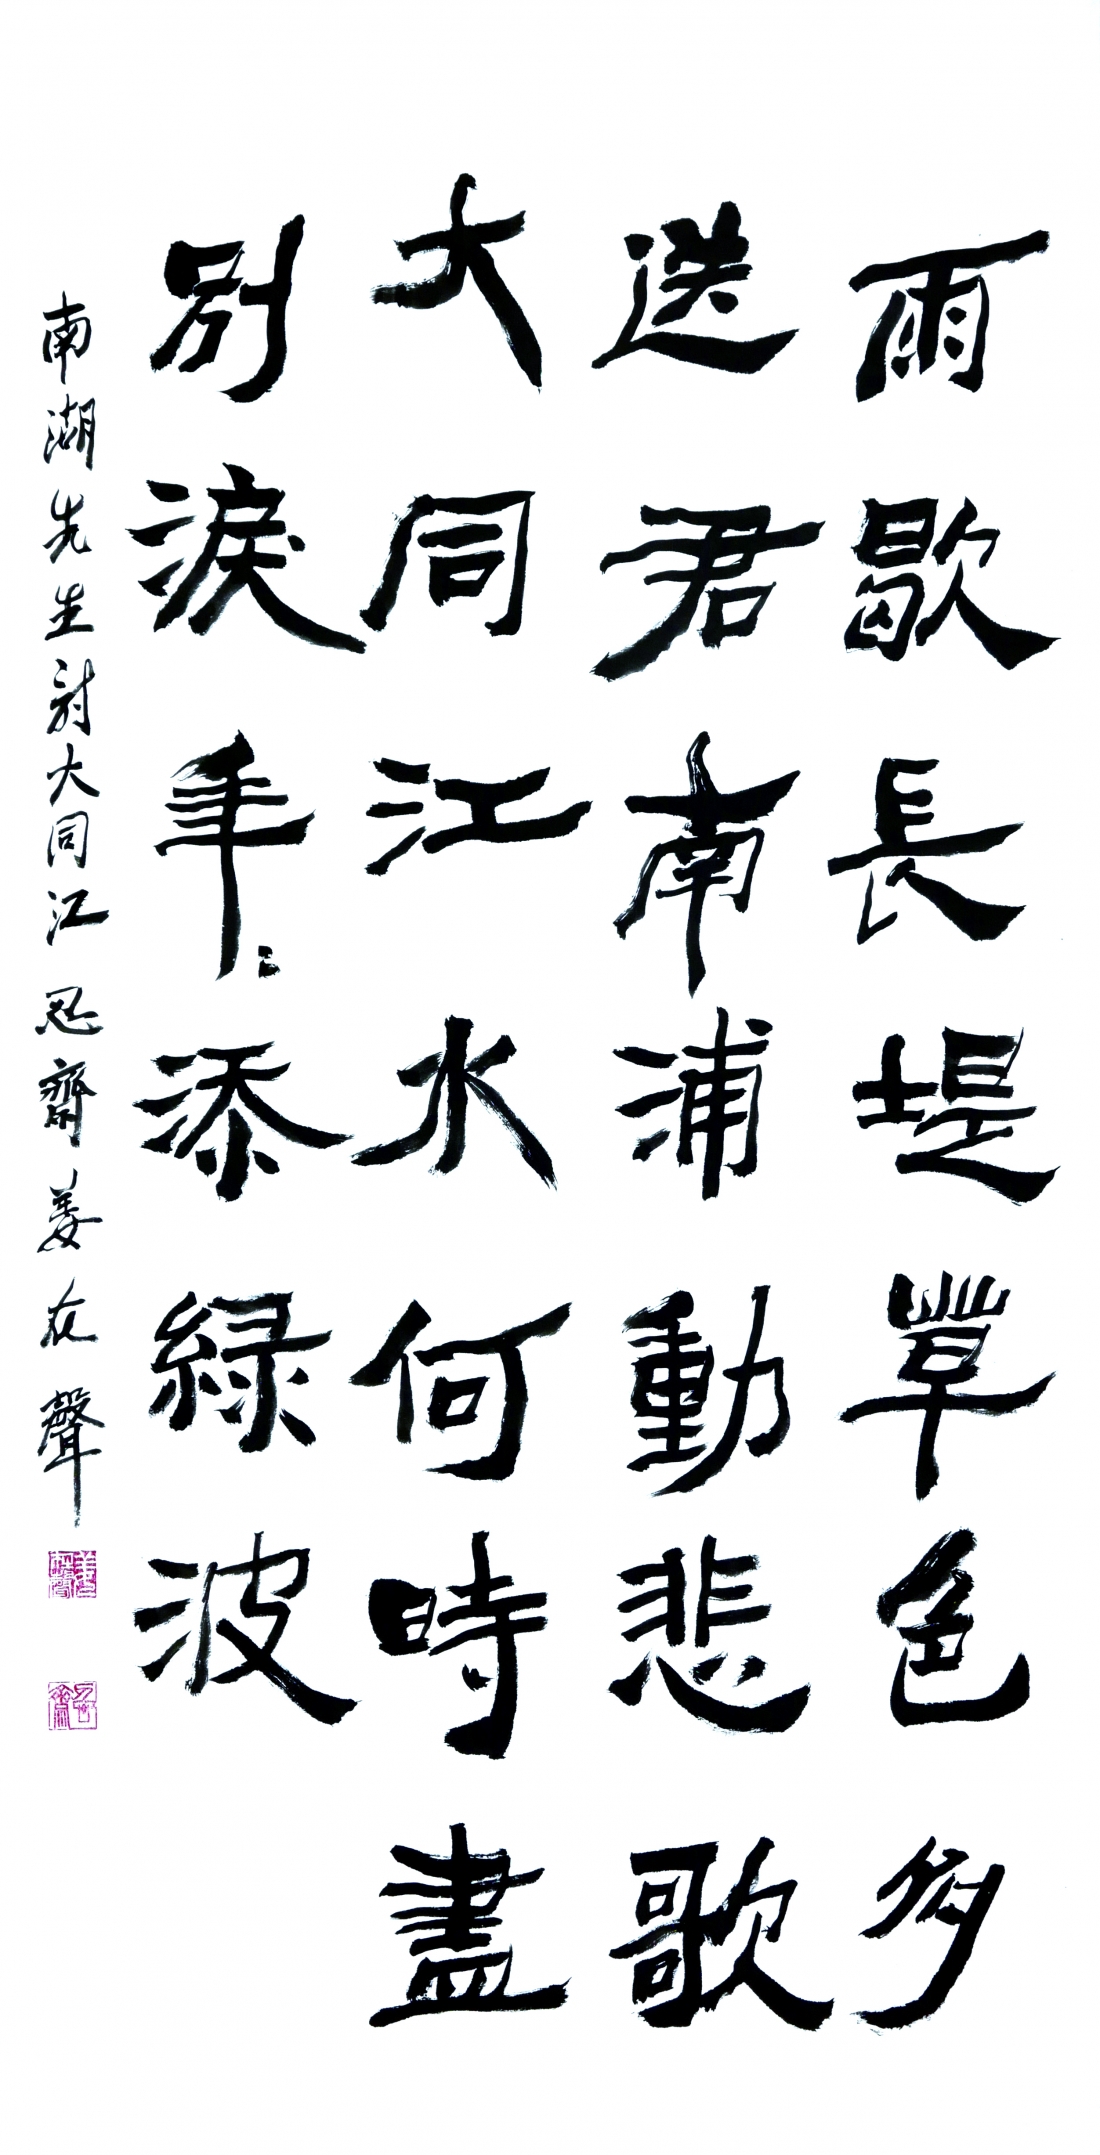 雨歇長堤草色多
送君南浦動悲歌
大同江水何時盡
別淚年〻添綠波
南湖先生詩大同江 忍齋姜在聲